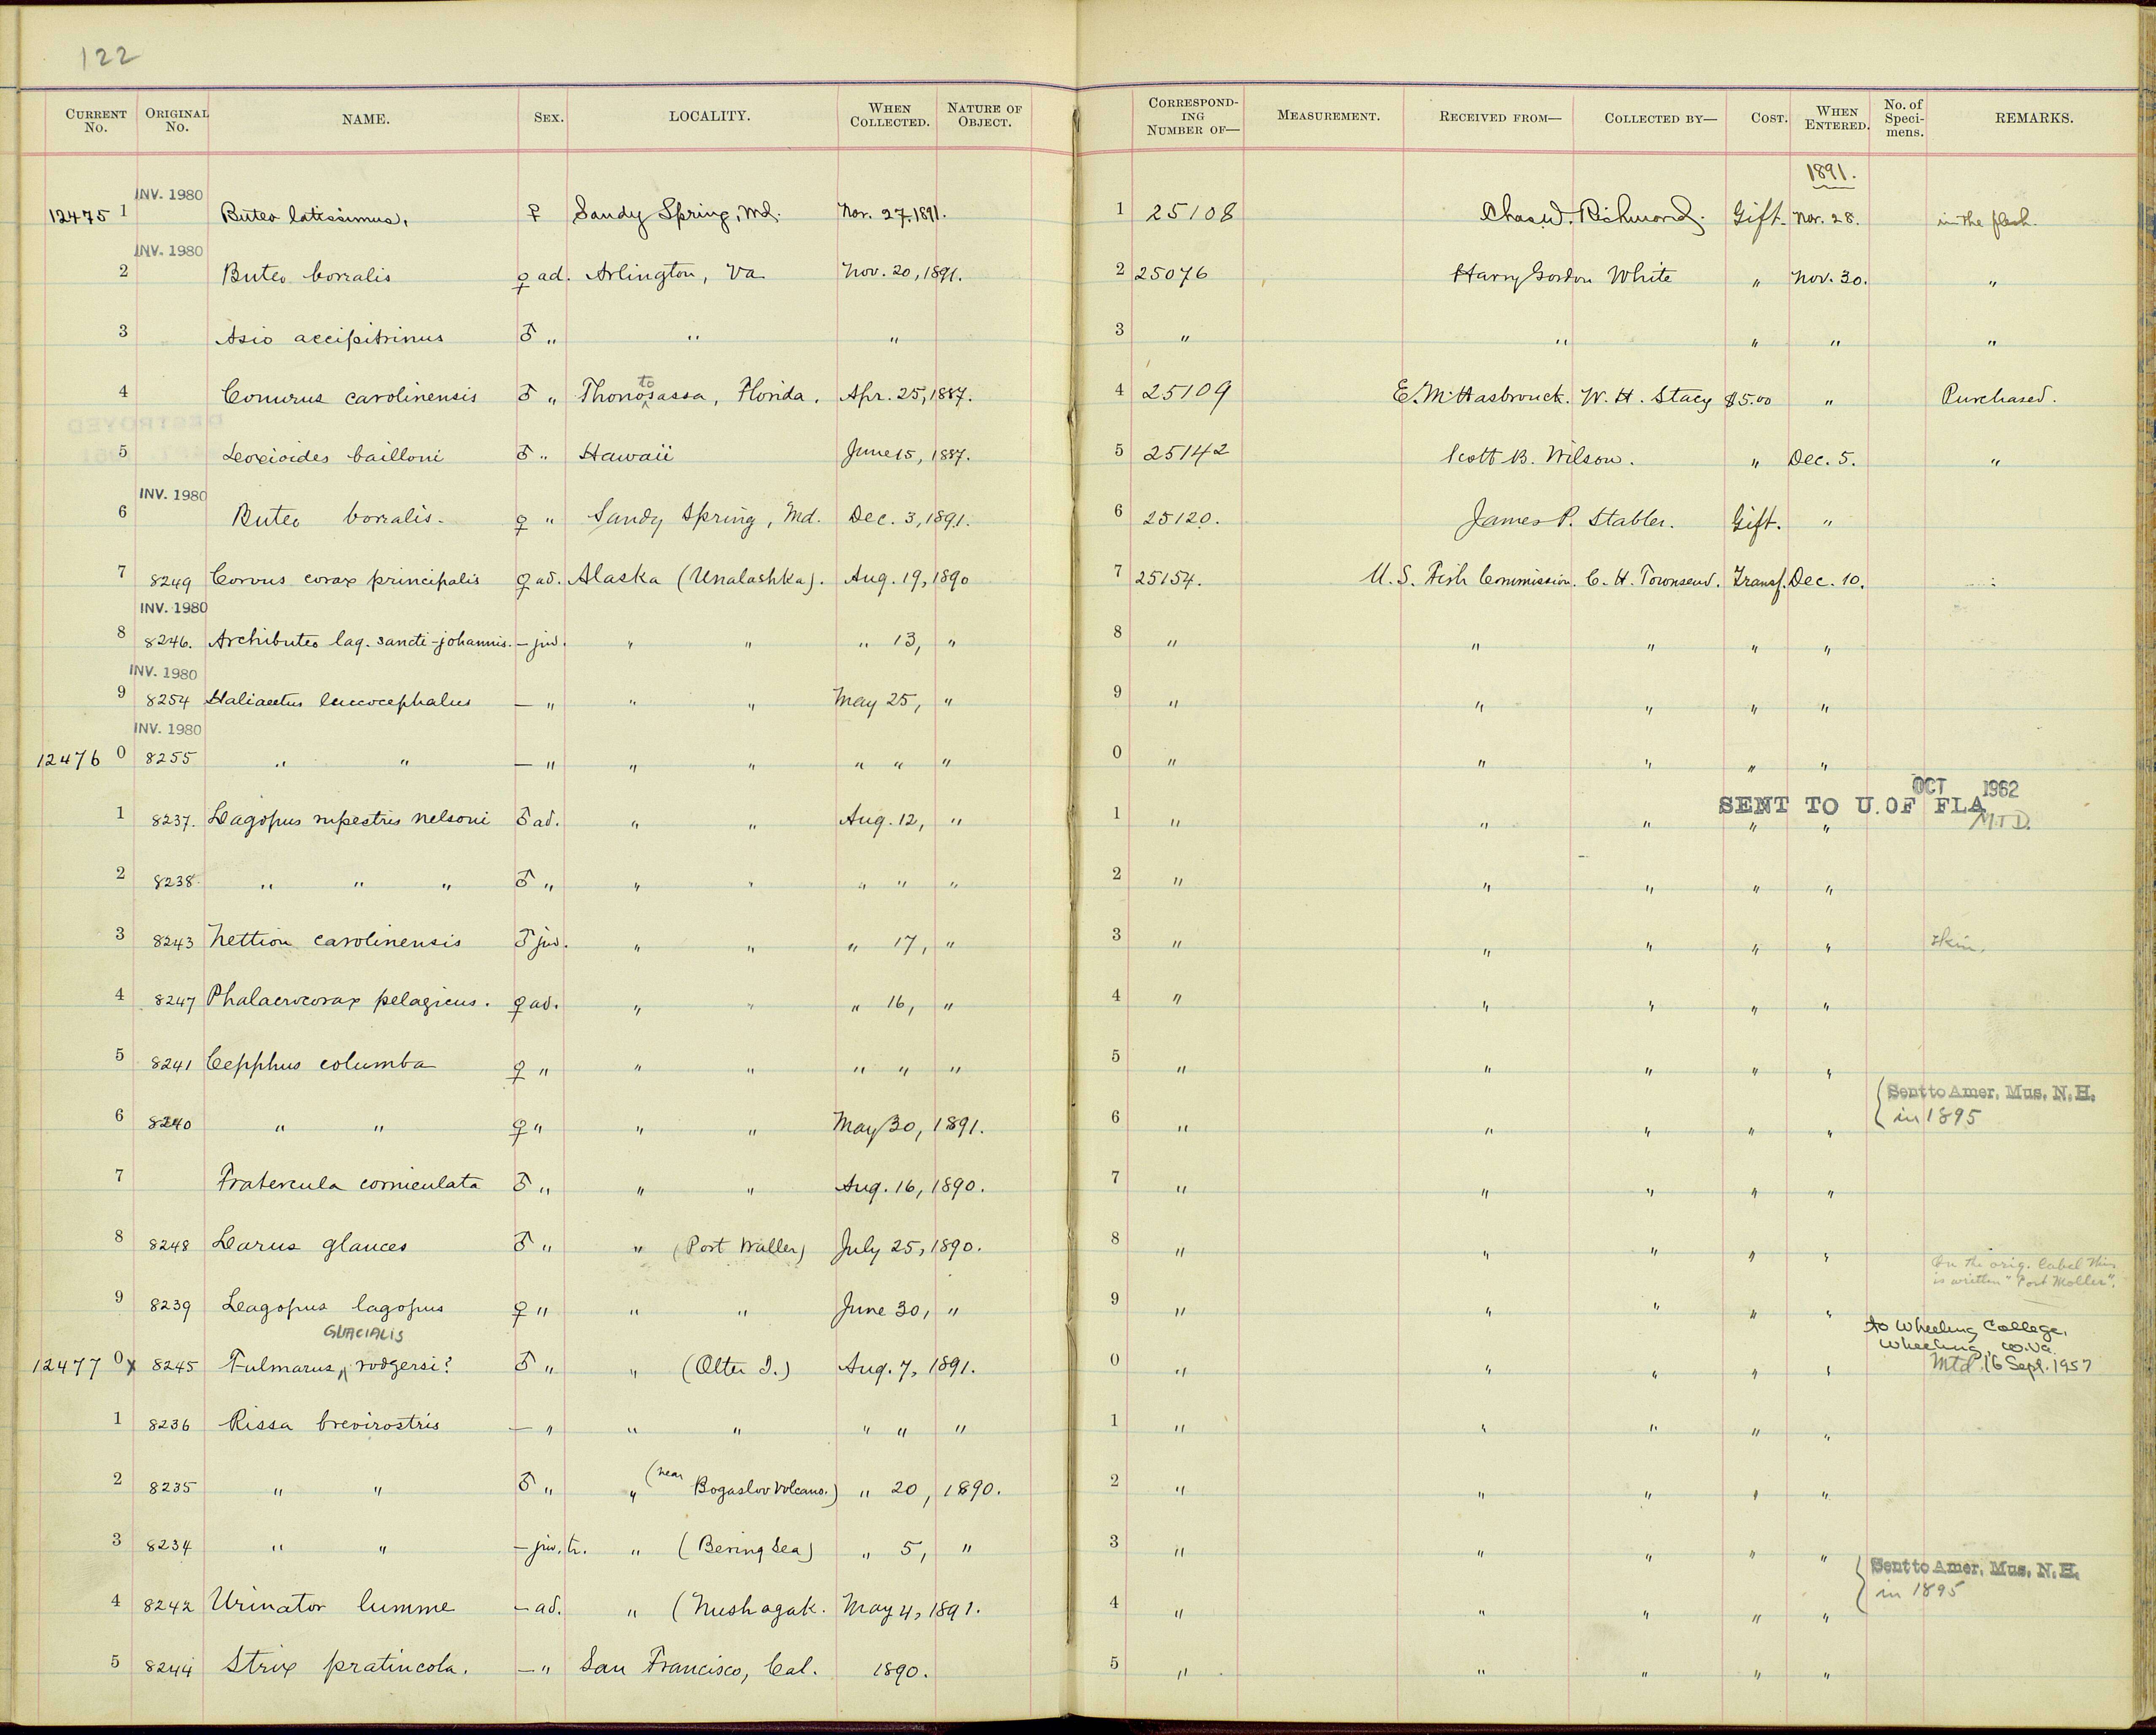 122
CURRENT No. ORIGINAL No. NAME. SEX. LOCALITY. WHEN COLLECTED. NATURE OF OBJECT. CORRESPONDING NUMBER OF— MEASUREMENT. RECEIVED FROM— COLLECTED BY— COST. WHEN ENTERED. No. of Specimens. REMARKS.
1891.
INV. 1980
12475 1 Buteo latissimus, ♀ Sandy Spring, Md. Nov. 27, 1891. 1 25108 Chas. W. Richmond. Gift. Nov. 28. in the flesh.
INV. 1980
2 Buteo borealis ♀ ad. Arlington, Va Nov. 20, 1891. 2 25076 Harry Gordon White " Nov. 30. "
3 Asio accipitrinus ♂ " " " 3 " " " " "
4 Conurus carolinensis ♂ " Thonotosassa, Florida. Apr. 25, 1887. 4 25109 E. M. Hasbrouck. W. H. Stacy $5.00 " Purchased.
5 Loxioides bailloni ♂ " Hawaii June 15, 1887. 5 25142 Scott B. Wilson. " Dec. 5. "
INV. 1980
6 Buteo borealis. ♀ " Sandy Spring, Md. Dec. 3, 1891. 6 25120. James P. Stabler. Gift. "
7 8249 Corvus corax principalis ♀ ad. Alaska (Unalashka). Aug. 19, 1890 7 25154. U. S. Fish Commission. C. H. Townsend. Transf. Dec. 10.
INV. 1980
8 8246. Archibuteo lag. sancti-johannis. — juv. " " " 13, " 8 " " " " "
INV. 1980
9 8254 Haliaetus leucocephalus — " " " May 25, " 9 " " " " "
INV. 1980
12476 0 8255 " " — " " " " " " 0 " " " " "
OCT 1962
SENT TO U. OF FLA
1 8237. Lagopus rupestris nelsoni ♂ ad. " " Aug. 12, " 1 " " " " " MTD.
2 8238. " " " ♂ " " " " " " 2 " " " " "
3 8243 Nettion carolinensis ♂ juv. " " " 17, " 3 " " " " " skin.
4 8247 Phalacrocorax pelagicus. ♀ ad. " " " 16, " 4 " " " " "
5 8241 Cepphus columba ♀ " " " " " " 5 " " " " "
Sent to Amer. Mus. N. H.
in 1895
6 8240 " " ♀ " " " May 30, 1891. 6 " " " " "
7 Fratercula corniculata ♂ " " " Aug. 16, 1890. 7 " " " " "
8 8248 Larus glauces ♂ " " (Port Waller) July 25, 1890. 8 " " " " "
On the orig. label this
is written "Port Moller".
9 8239 Lagopus lagopus ♀ " " " June 30, " 9 " " " " "
GLACIALIS
to Wheeling College,
Wheeling, W. Va.
12477 0 x 8245 Fulmarus, rodgersi? ♂ " " (Otter I.) Aug. 7, 1891. 0 " " " " " Mtd. 16 Sept. 1957
1 8236 Rissa brevirostris — " " " " " " 1 " " " " "
2 8235 " " ♂ " " (near Bogaslov Volcano.) " 20, 1890. 2 " " " " "
3 8234 " " — juv. tr. " (Bering Sea) " 5, " 3 " " " " "
Sent to Amer. Mus. N. H.
in 1895
4 8242 Urinator lumme — ad. " (Nushagak. May 4, 1891. 4 " " " " "
5 8244 Strix pratincola. — " San Francisco, Cal. 1890. 5 " " " " "